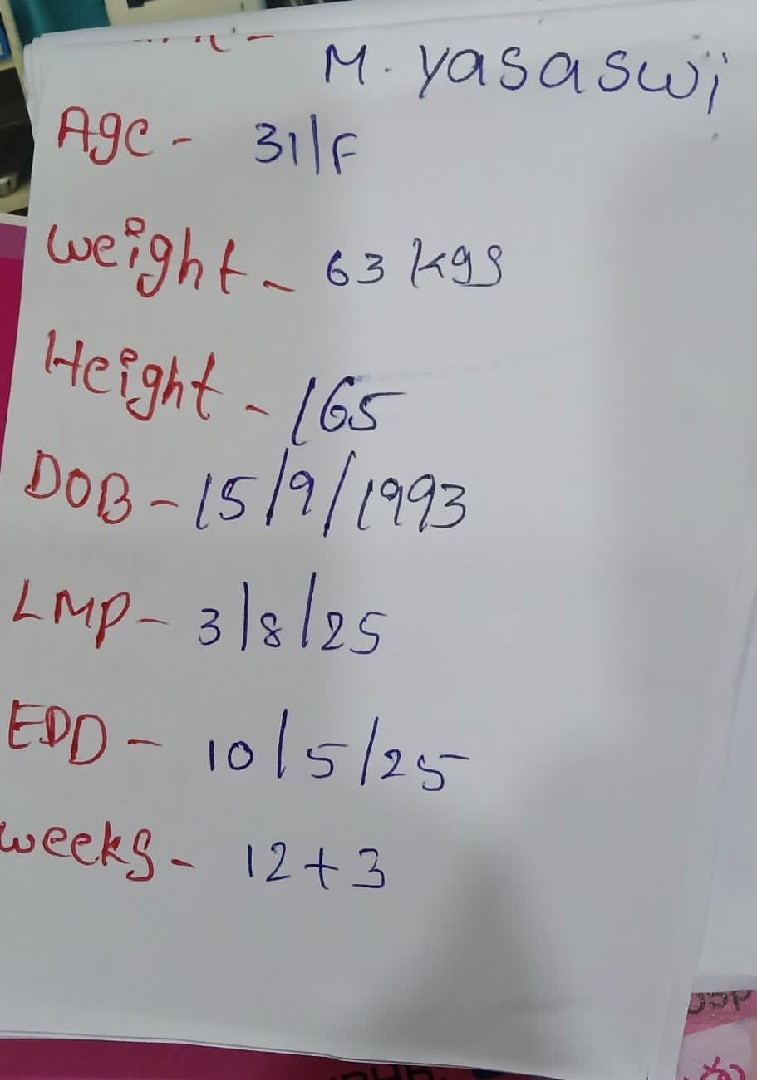 M. Yasaswi
Age - 31/F
Weight - 63 kgs
Height - 165
DOB - 15/9/1993
LMP - 3/8/25
EDD - 10/5/25
Weeks - 12+3